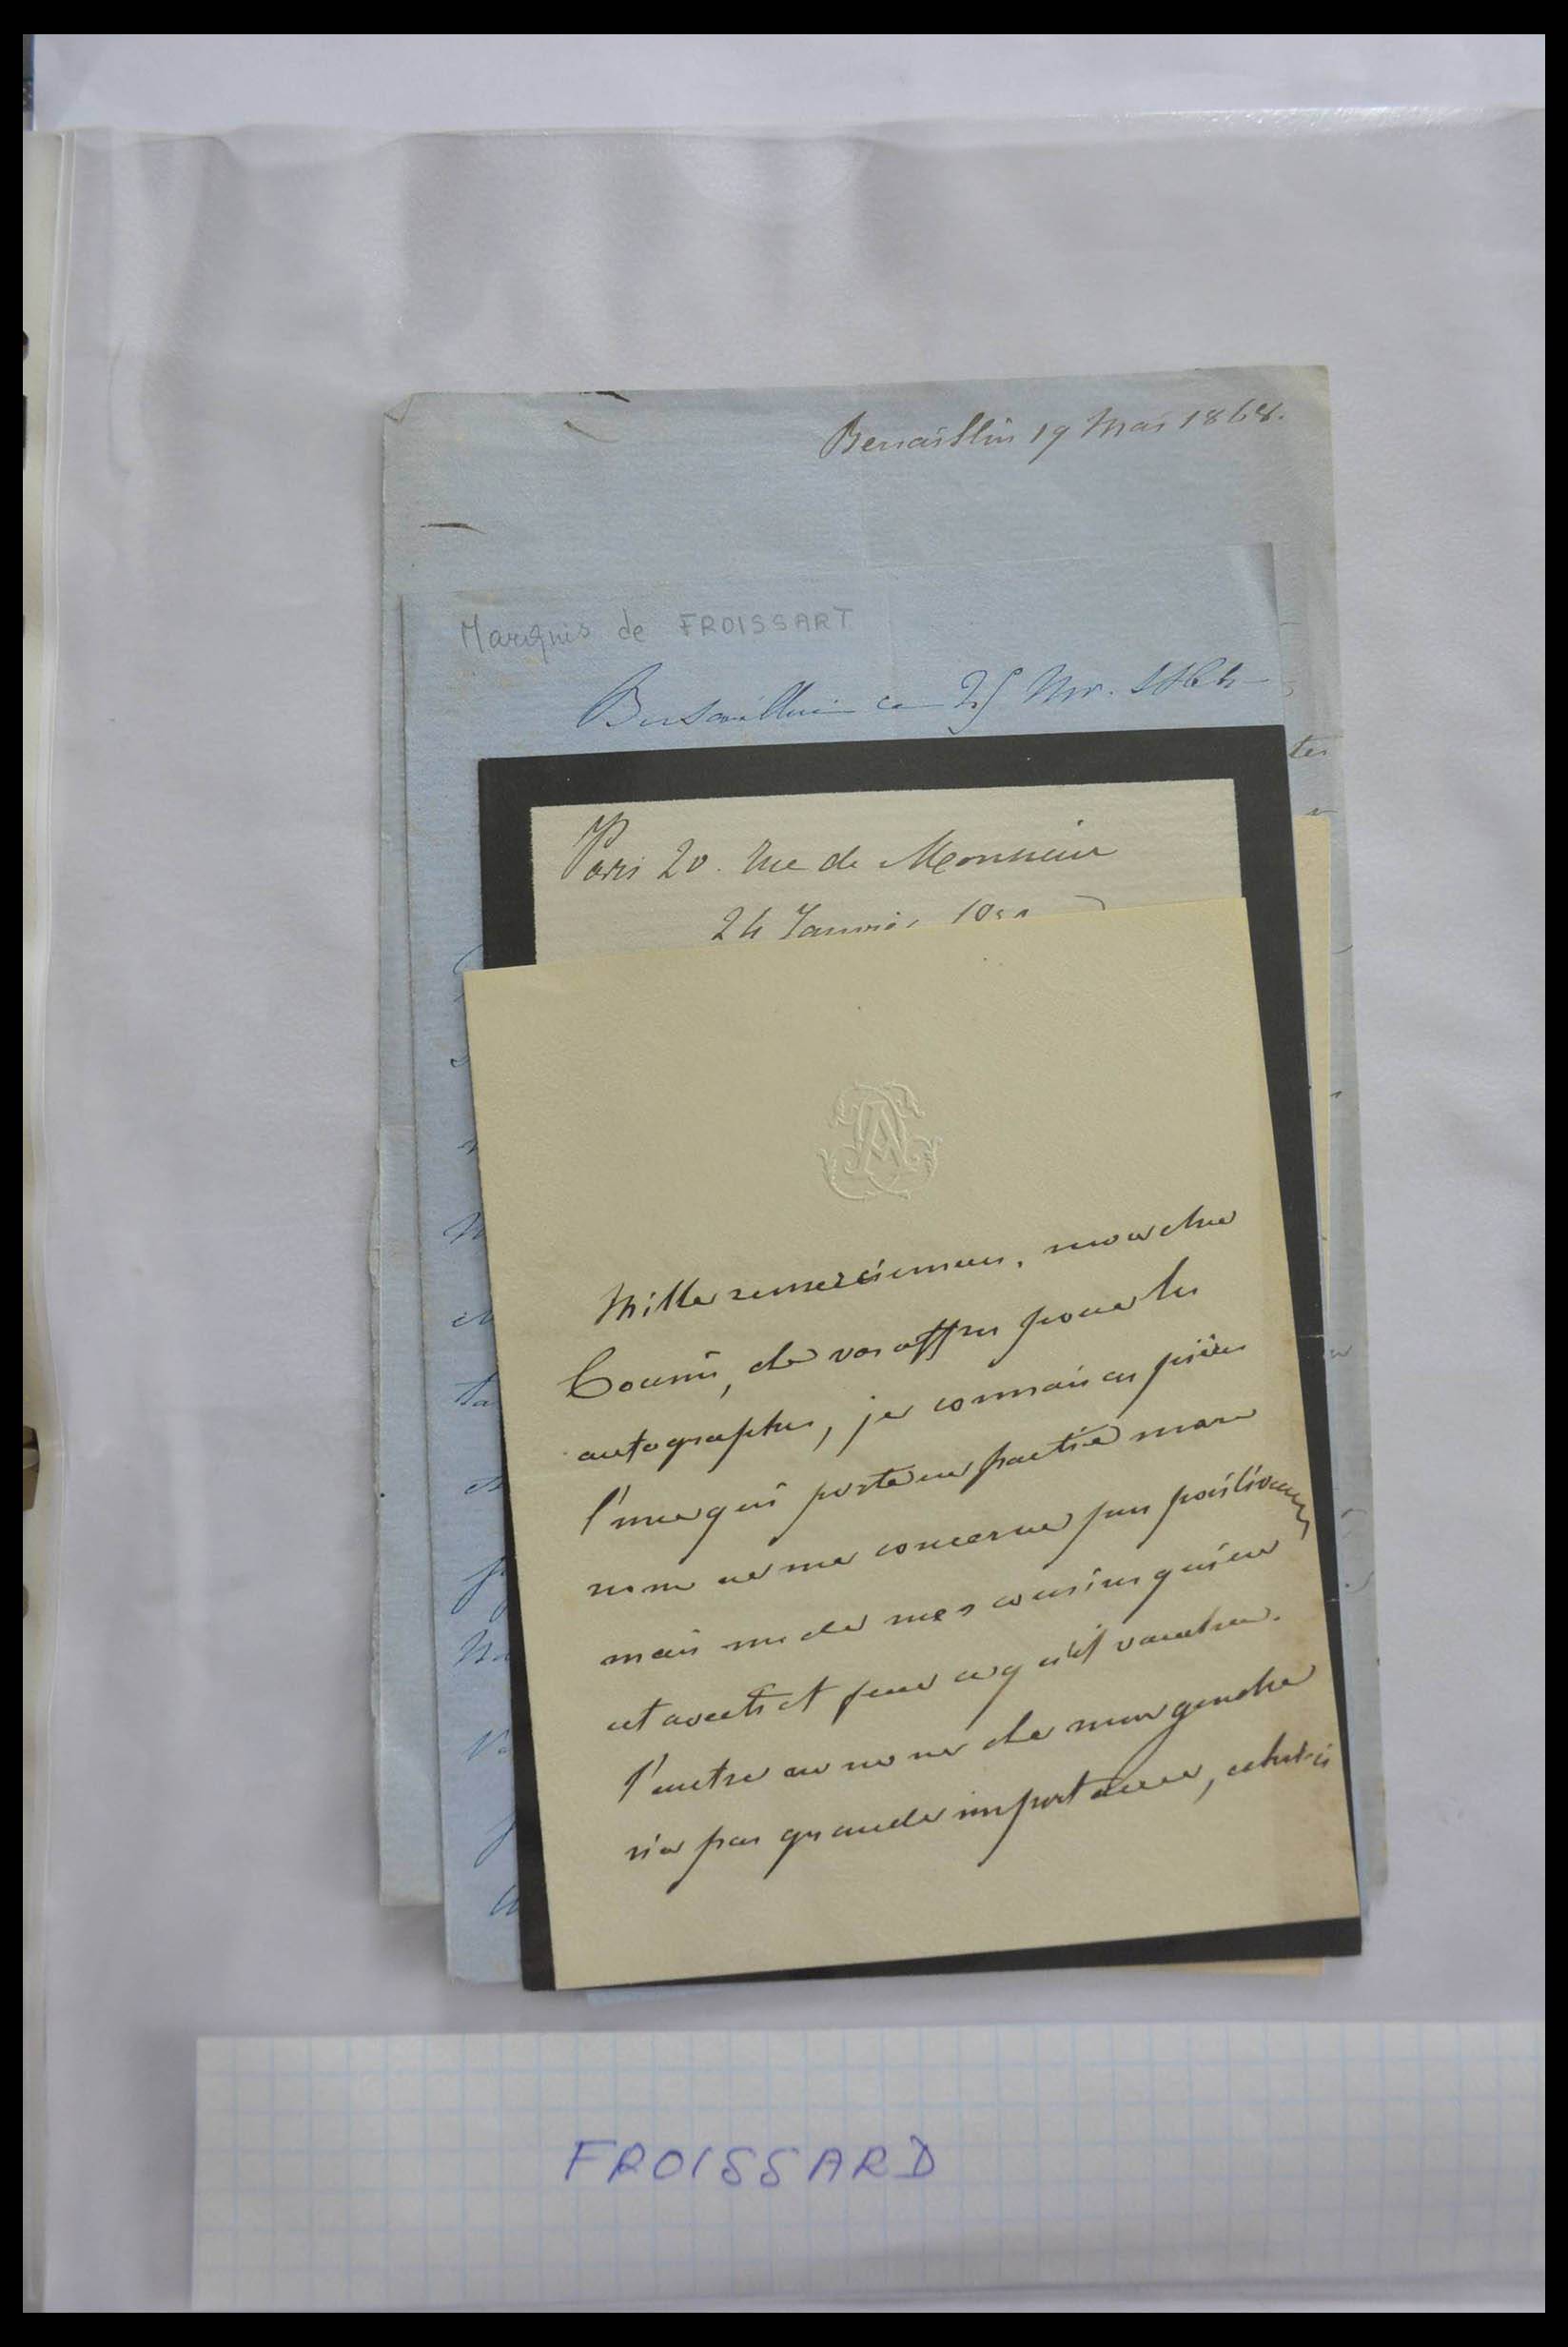 19 Mai 1868.
Marquis de FROISSART
ce 25
ter
Paris 20. rue de Monsieur
24 Janvier
Mille remerciemens, mon cher
Cousin, de vos offres pour les
autographes, je connais ces pièces
l'une qui porte en partie mon
nom ne me concerne pas positivement
mais un de mes cousins qui en
est averti et fera ce qu'il voudra.
l'autre au nom de mon gendre
n'a pas grande importance, celui-ci
FROISSARD